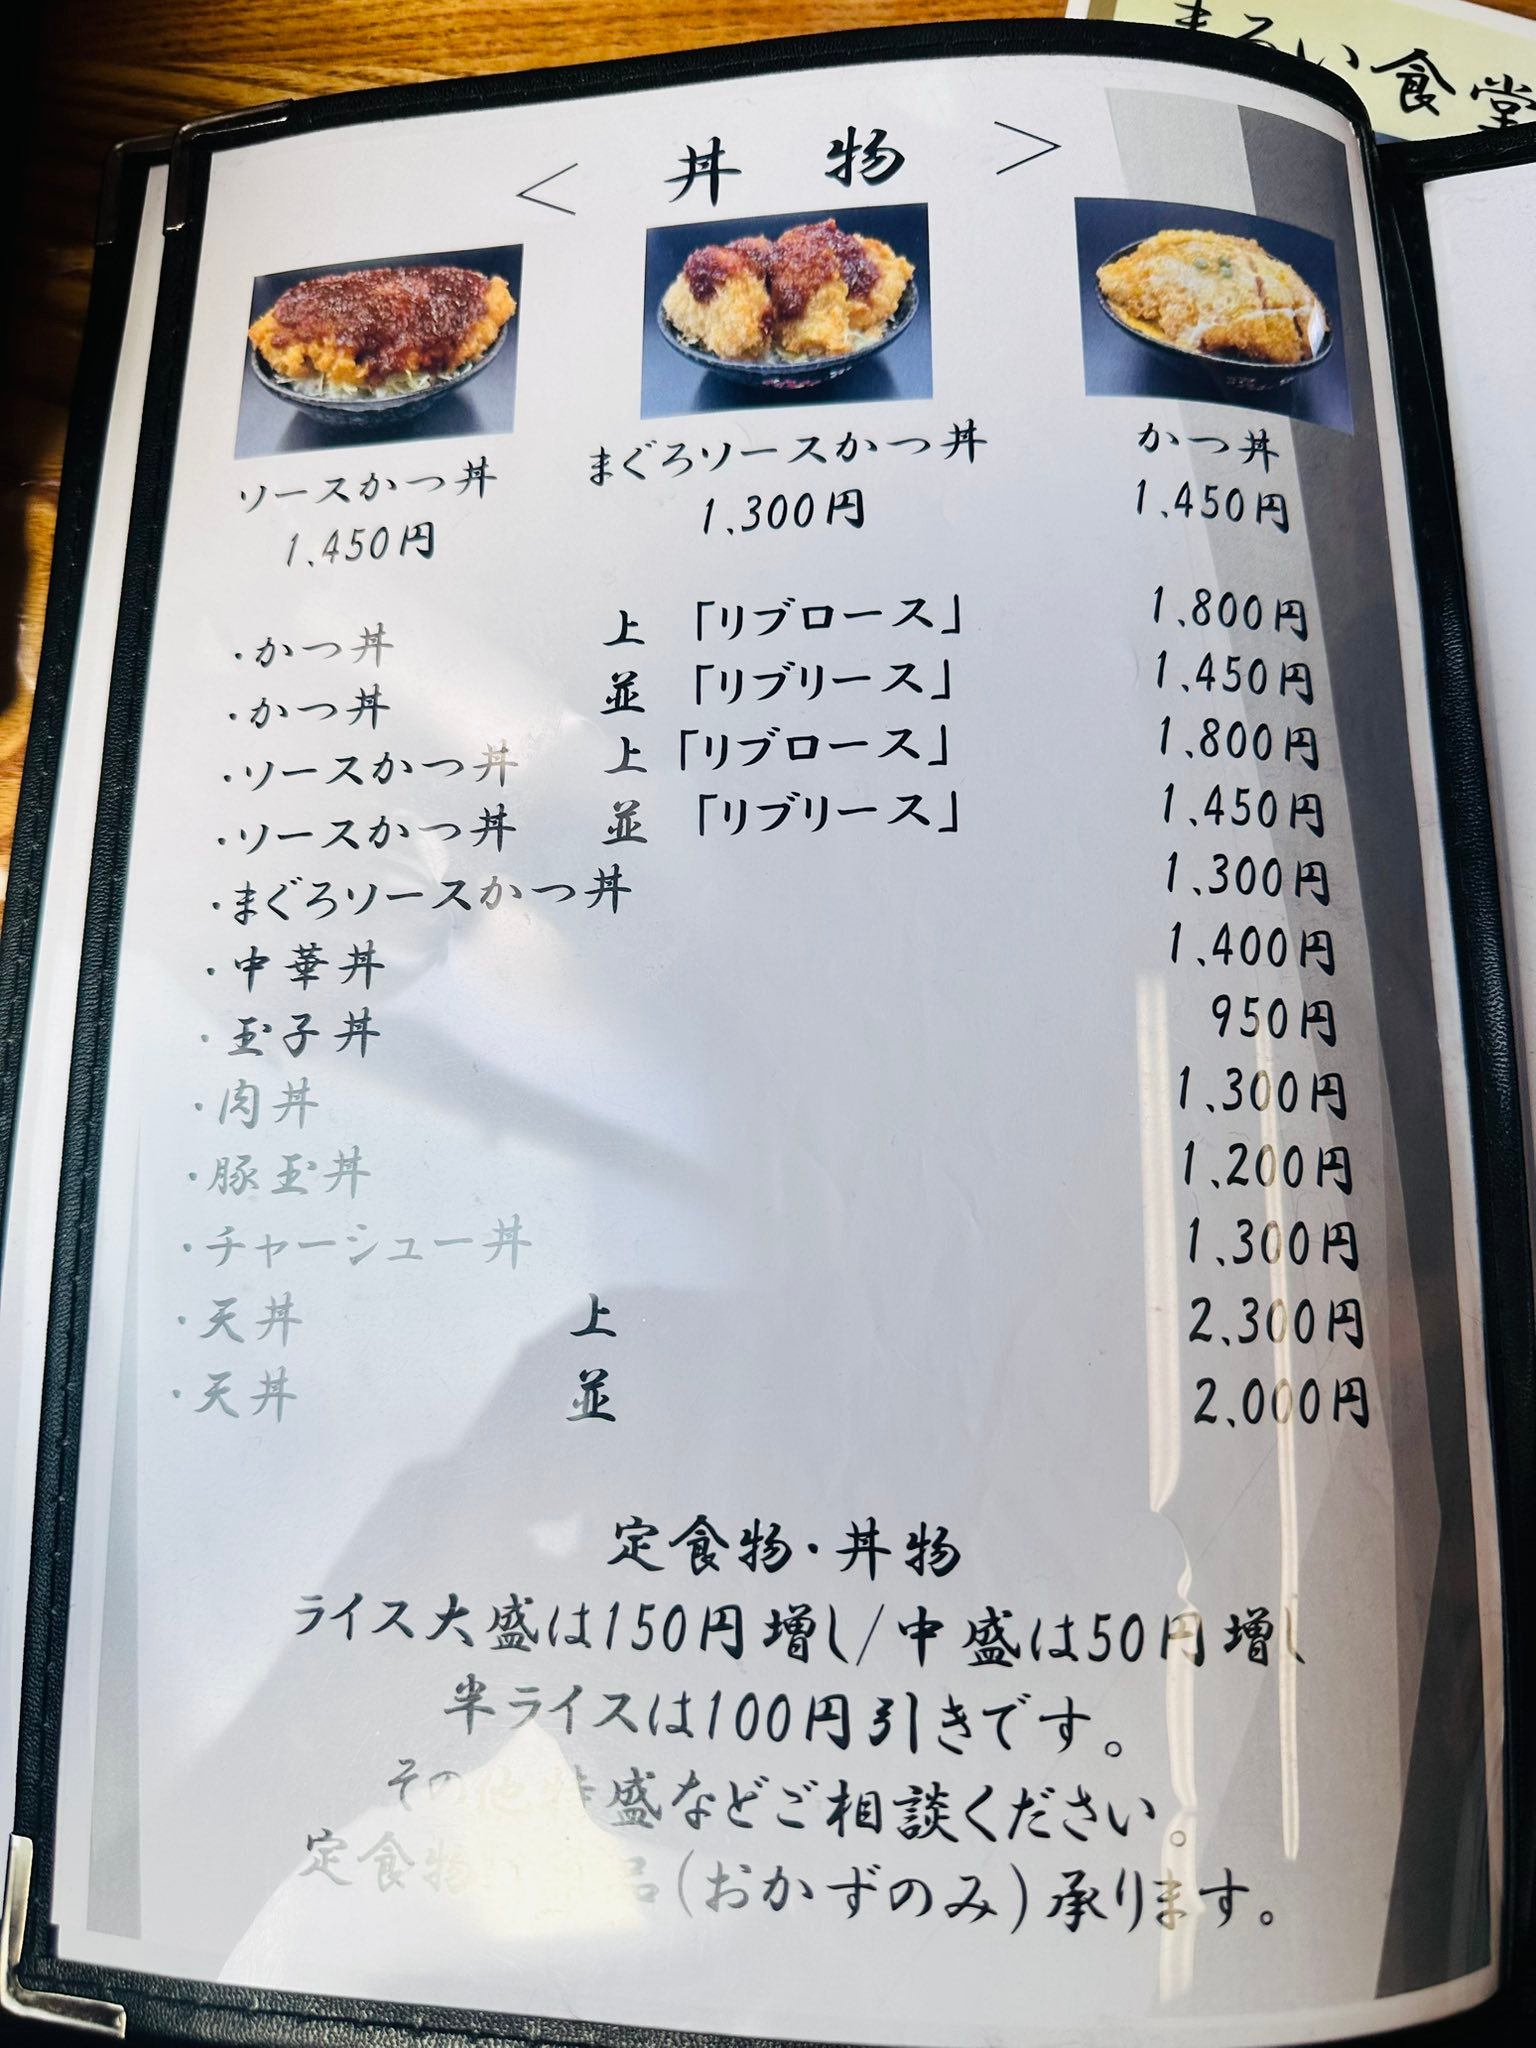 まるい食堂
＜ 丼 物 ＞
ソースかつ丼
1.450円
まぐろソースかつ丼
1.300円
かつ丼
1.450円
・かつ丼 上 「リブロース」 1.800円
・かつ丼 並 「リブリース」 1.450円
・ソースかつ丼 上 「リブロース」 1.800円
・ソースかつ丼 並 「リブリース」 1.450円
・まぐろソースかつ丼 1.300円
・中華丼 1.400円
・玉子丼 950円
・肉丼 1.300円
・豚玉丼 1.200円
・チャーシュー丼 1.300円
・天丼 上 2.300円
・天丼 並 2.000円
定食物・丼物
ライス大盛は150円増し/中盛は50円増し
半ライスは100円引きです。
その他特盛などご相談ください。
定食物 品(おかずのみ)承ります。